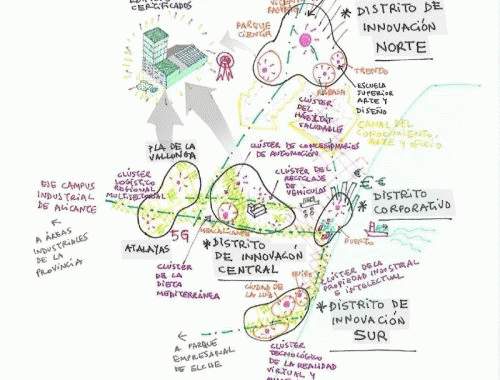 CERTIFICADOS
PARQUE
CIENTÍFI
* DISTRITO DE
INNOVACIÓN
NORTE
TRENTO
RABASA
ESCUELA
SUPERIOR
ARTE Y
DISEÑO
CLÚSTER
DEL
HÁBITAT
SALUDABLE
CANAL DEL
CONOCIMIENTO,
ARTE Y OFICIO
PLA DE LA
VALLONGA
CLÚSTER DE CONCESIONARIOS
DE AUTOMOCIÓN
CLÚSTER
LOGÍSTICO
REGIONAL
MULTISECTORIAL
CLÚSTER DEL
RECICLAJE
DE
VEHÍCULOS
EJE CAMPUS
INDUSTRIAL
DE ALICANTE
A ÁREAS
INDUSTRIALES
DE LA
PROVINCIA
€ €
* DISTRITO
CORPORATIVO
PUERTO
MERCALICANTE
ATALAYAS
5G
* DISTRITO
DE INNOVACIÓN
CENTRAL
CLÚSTER
DE LA
DIETA
MEDITERRÁNEA
CIUDAD DE
LA LUZ
CLÚSTER DE LA
PROPIEDAD INDUSTRIAL
E INTELECTUAL
* DISTRITO DE
INNOVACIÓN
SUR
A PARQUE
EMPRESARIAL
DE ELCHE
CLÚSTER
TECNOLÓGICO
DE LA REALIDAD
VIRTUAL Y